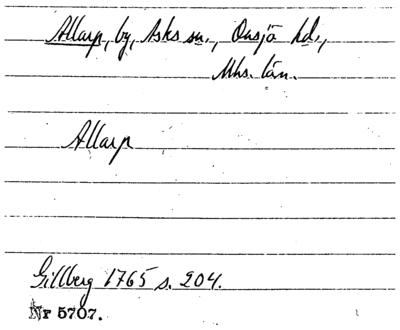 Allarp, by, Asks sn., Onsjö hd.,
Mhs. län.
Allarp
Gillberg 1765 s. 204.
Nr 5707.